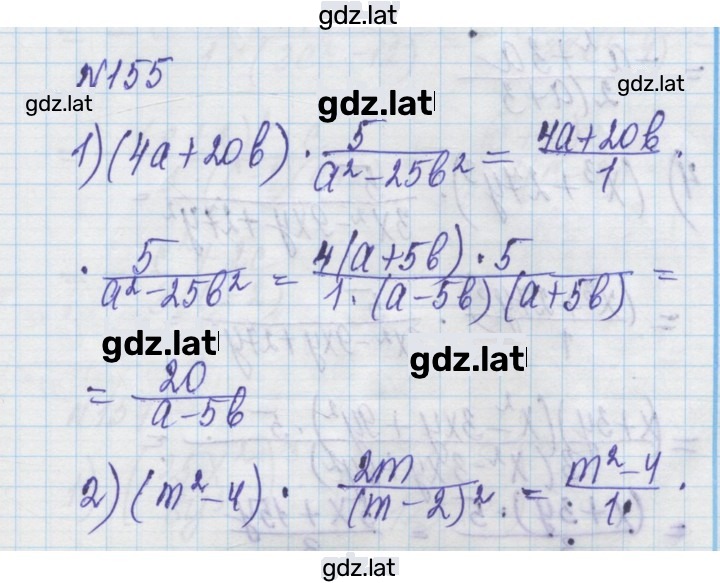 gdz.lat
№155
gdz.lat
gdz.lat
gdz.lat
1) (4a+20b) · 5/(a²-25b²) = (4a+20b)/1 ·
· 5/(a²-25b²) = 4(a+5b)·5/(1·(a-5b)(a+5b)) =
gdz.lat
gdz.lat
= 20/(a-5b)
2) (m²-4) · 2m/(m-2)² = (m²-4)/1 ·
gdz.lat